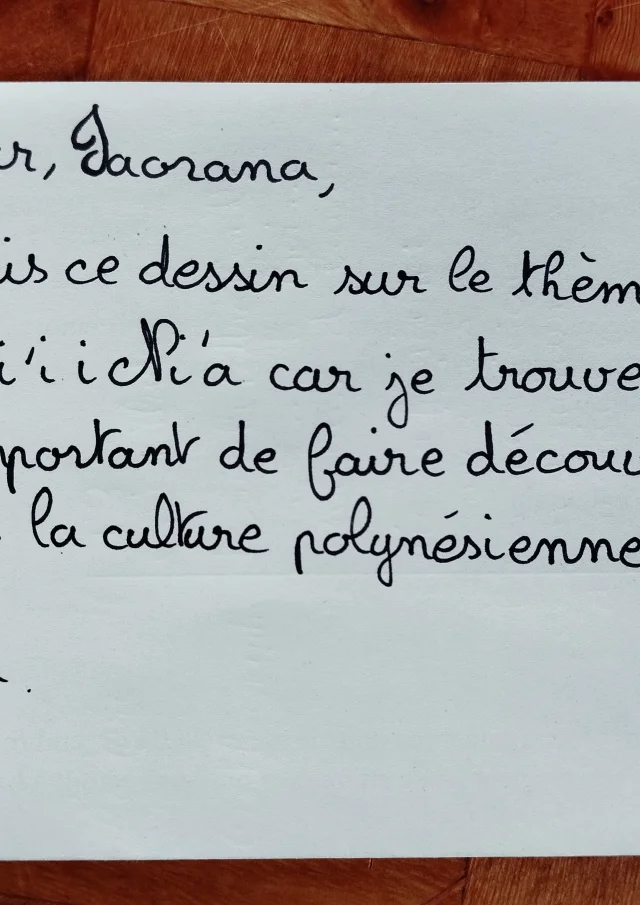 ur, Iaorana,
is ce dessin sur le thèm
i'i i Ni'a car je trouve
portant de faire découv
la culture polynésienne